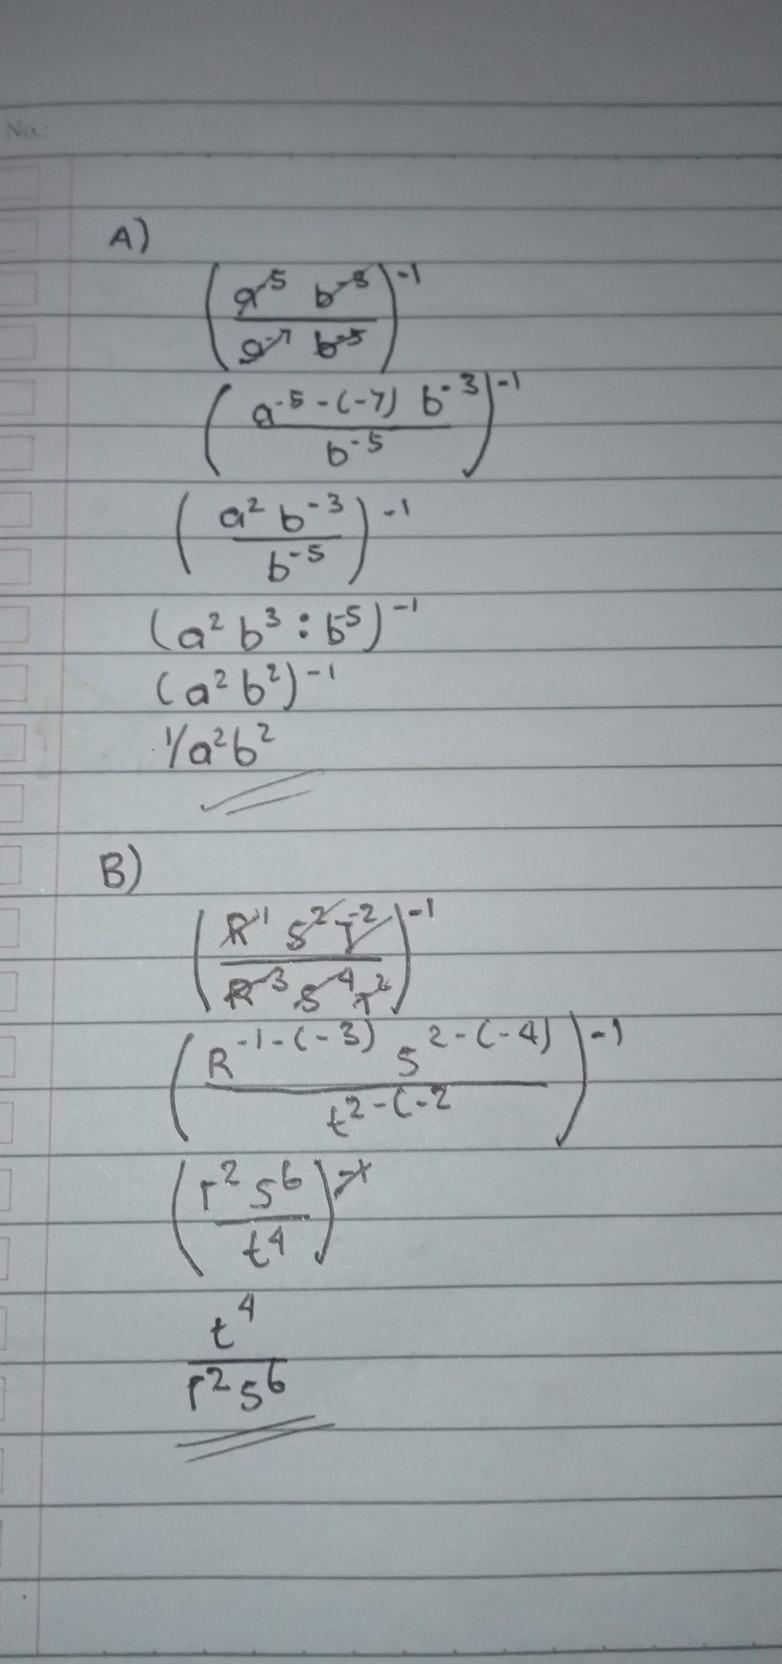 No.:
A)
(a^-5 b^-3 / a^-7 b^-5)^-1
(a^-5-(-7) b^-3 / b^-5)^-1
(a^2 b^-3 / b^-5)^-1
(a^2 b^3 : b^-5)^-1
(a^2 b^2)^-1
1/a^2 b^2
B)
(R^-1 S^2 T^-2 / R^-3 S^-4 T^2)^-1
(R^-1-(-3) S^2-(-4) / t^2-(-2)^-1
(r^2 s^6 / t^4)^-1
t^4 / r^2 s^6